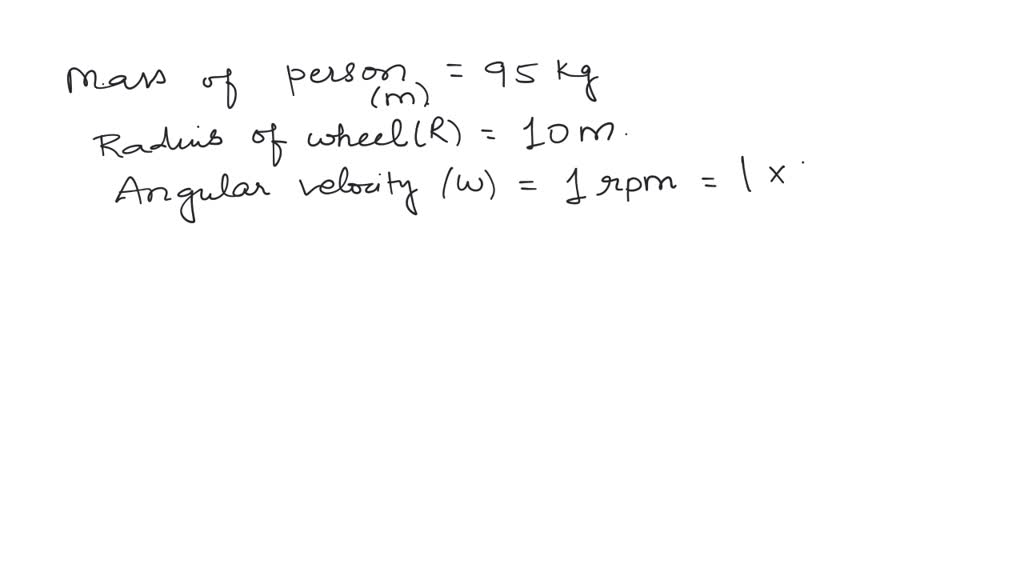 Mass of person = 95 kg
(m)
Radius of wheel (R) = 10 m.
Angular velocity (ω) = 1 rpm = 1 ×